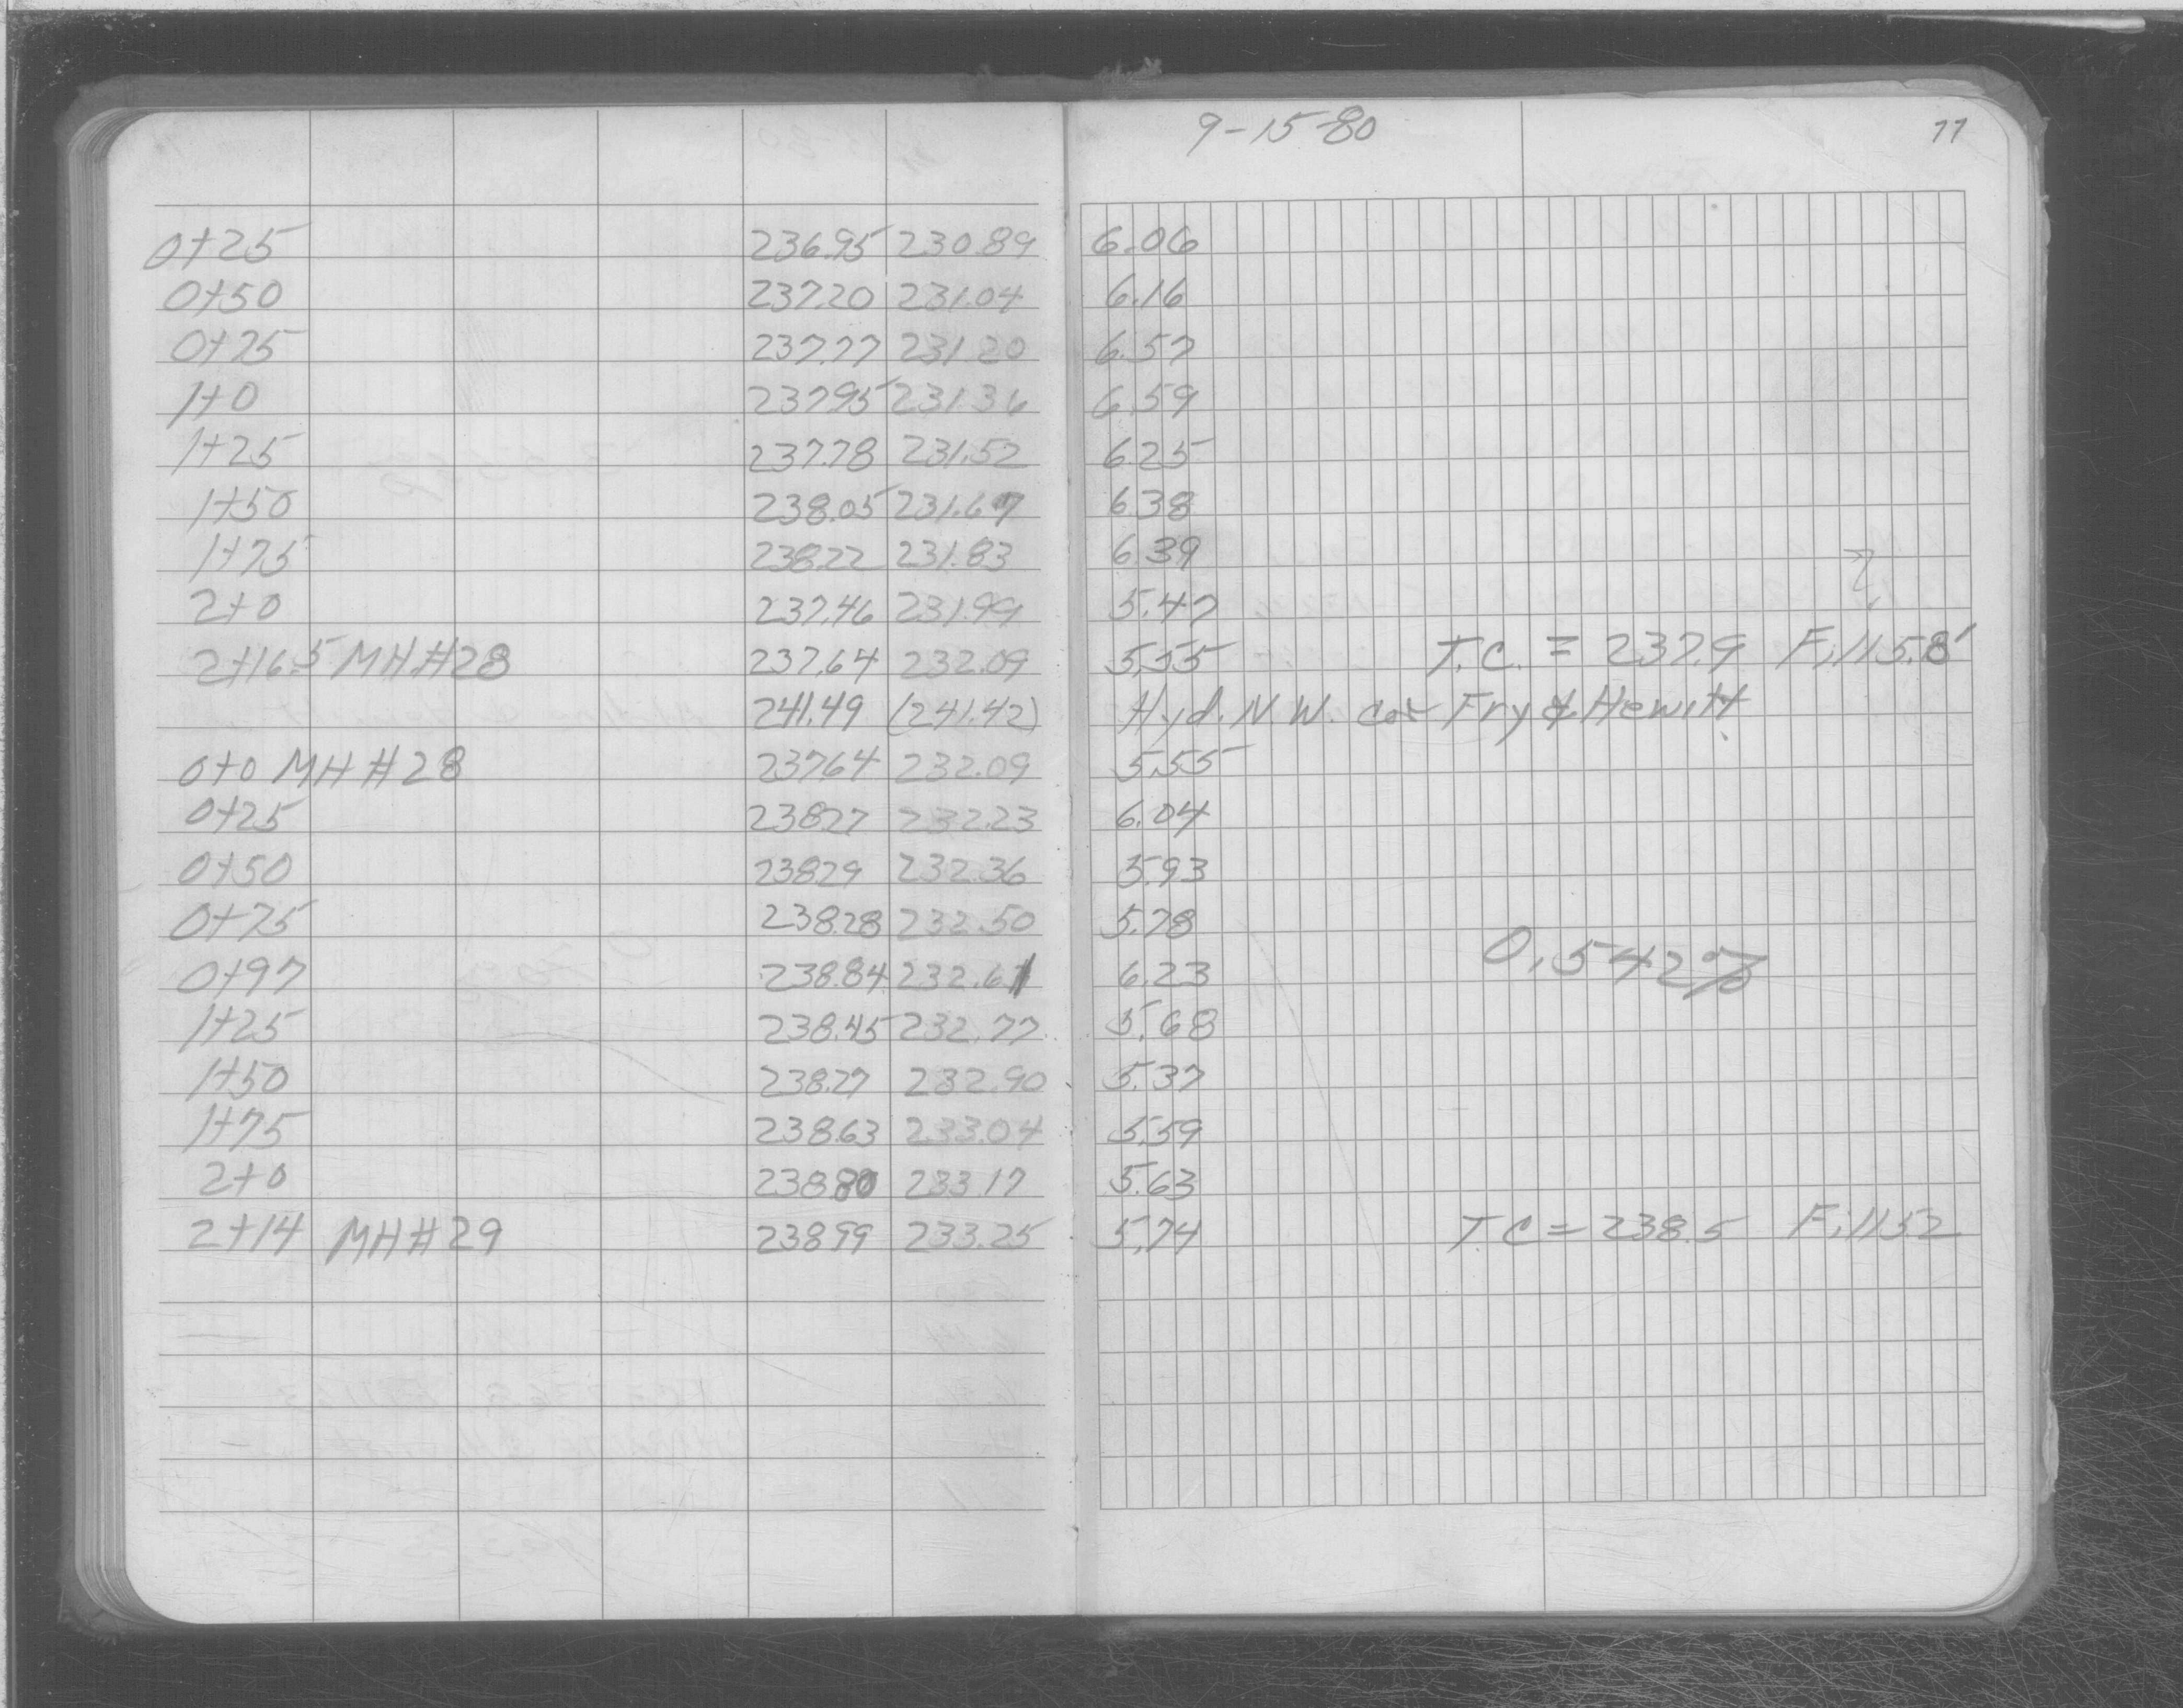 9-15-80 77
0+25 236.95 230.89 6.06
0+50 237.20 231.04 6.16
0+75 237.77 231.20 6.57
1+0 237.95 231.36 6.59
1+25 237.78 231.52 6.25
1+50 238.05 231.67 6.38
1+75 238.22 231.83 6.39
2+0 237.46 231.99 5.47
2+16.5 MH#28 237.64 232.09 5.55 T.C. = 237.9 Fill 5.8'
241.49 (241.42) Hyd. N.W. cor Fry & Hewitt
0+0 MH#28 237.64 232.09 5.55
0+25 238.27 232.23 6.04
0+50 238.29 232.36 5.93
0+75 238.28 232.50 5.78
0+97 238.84 232.61 6.23 0.542%
1+25 238.45 232.77 5.68
1+50 238.27 232.90 5.37
1+75 238.63 233.04 5.59
2+0 238.80 233.17 5.63
2+14 MH#29 238.99 233.25 5.74 T.C = 238.5 Fill 5.2